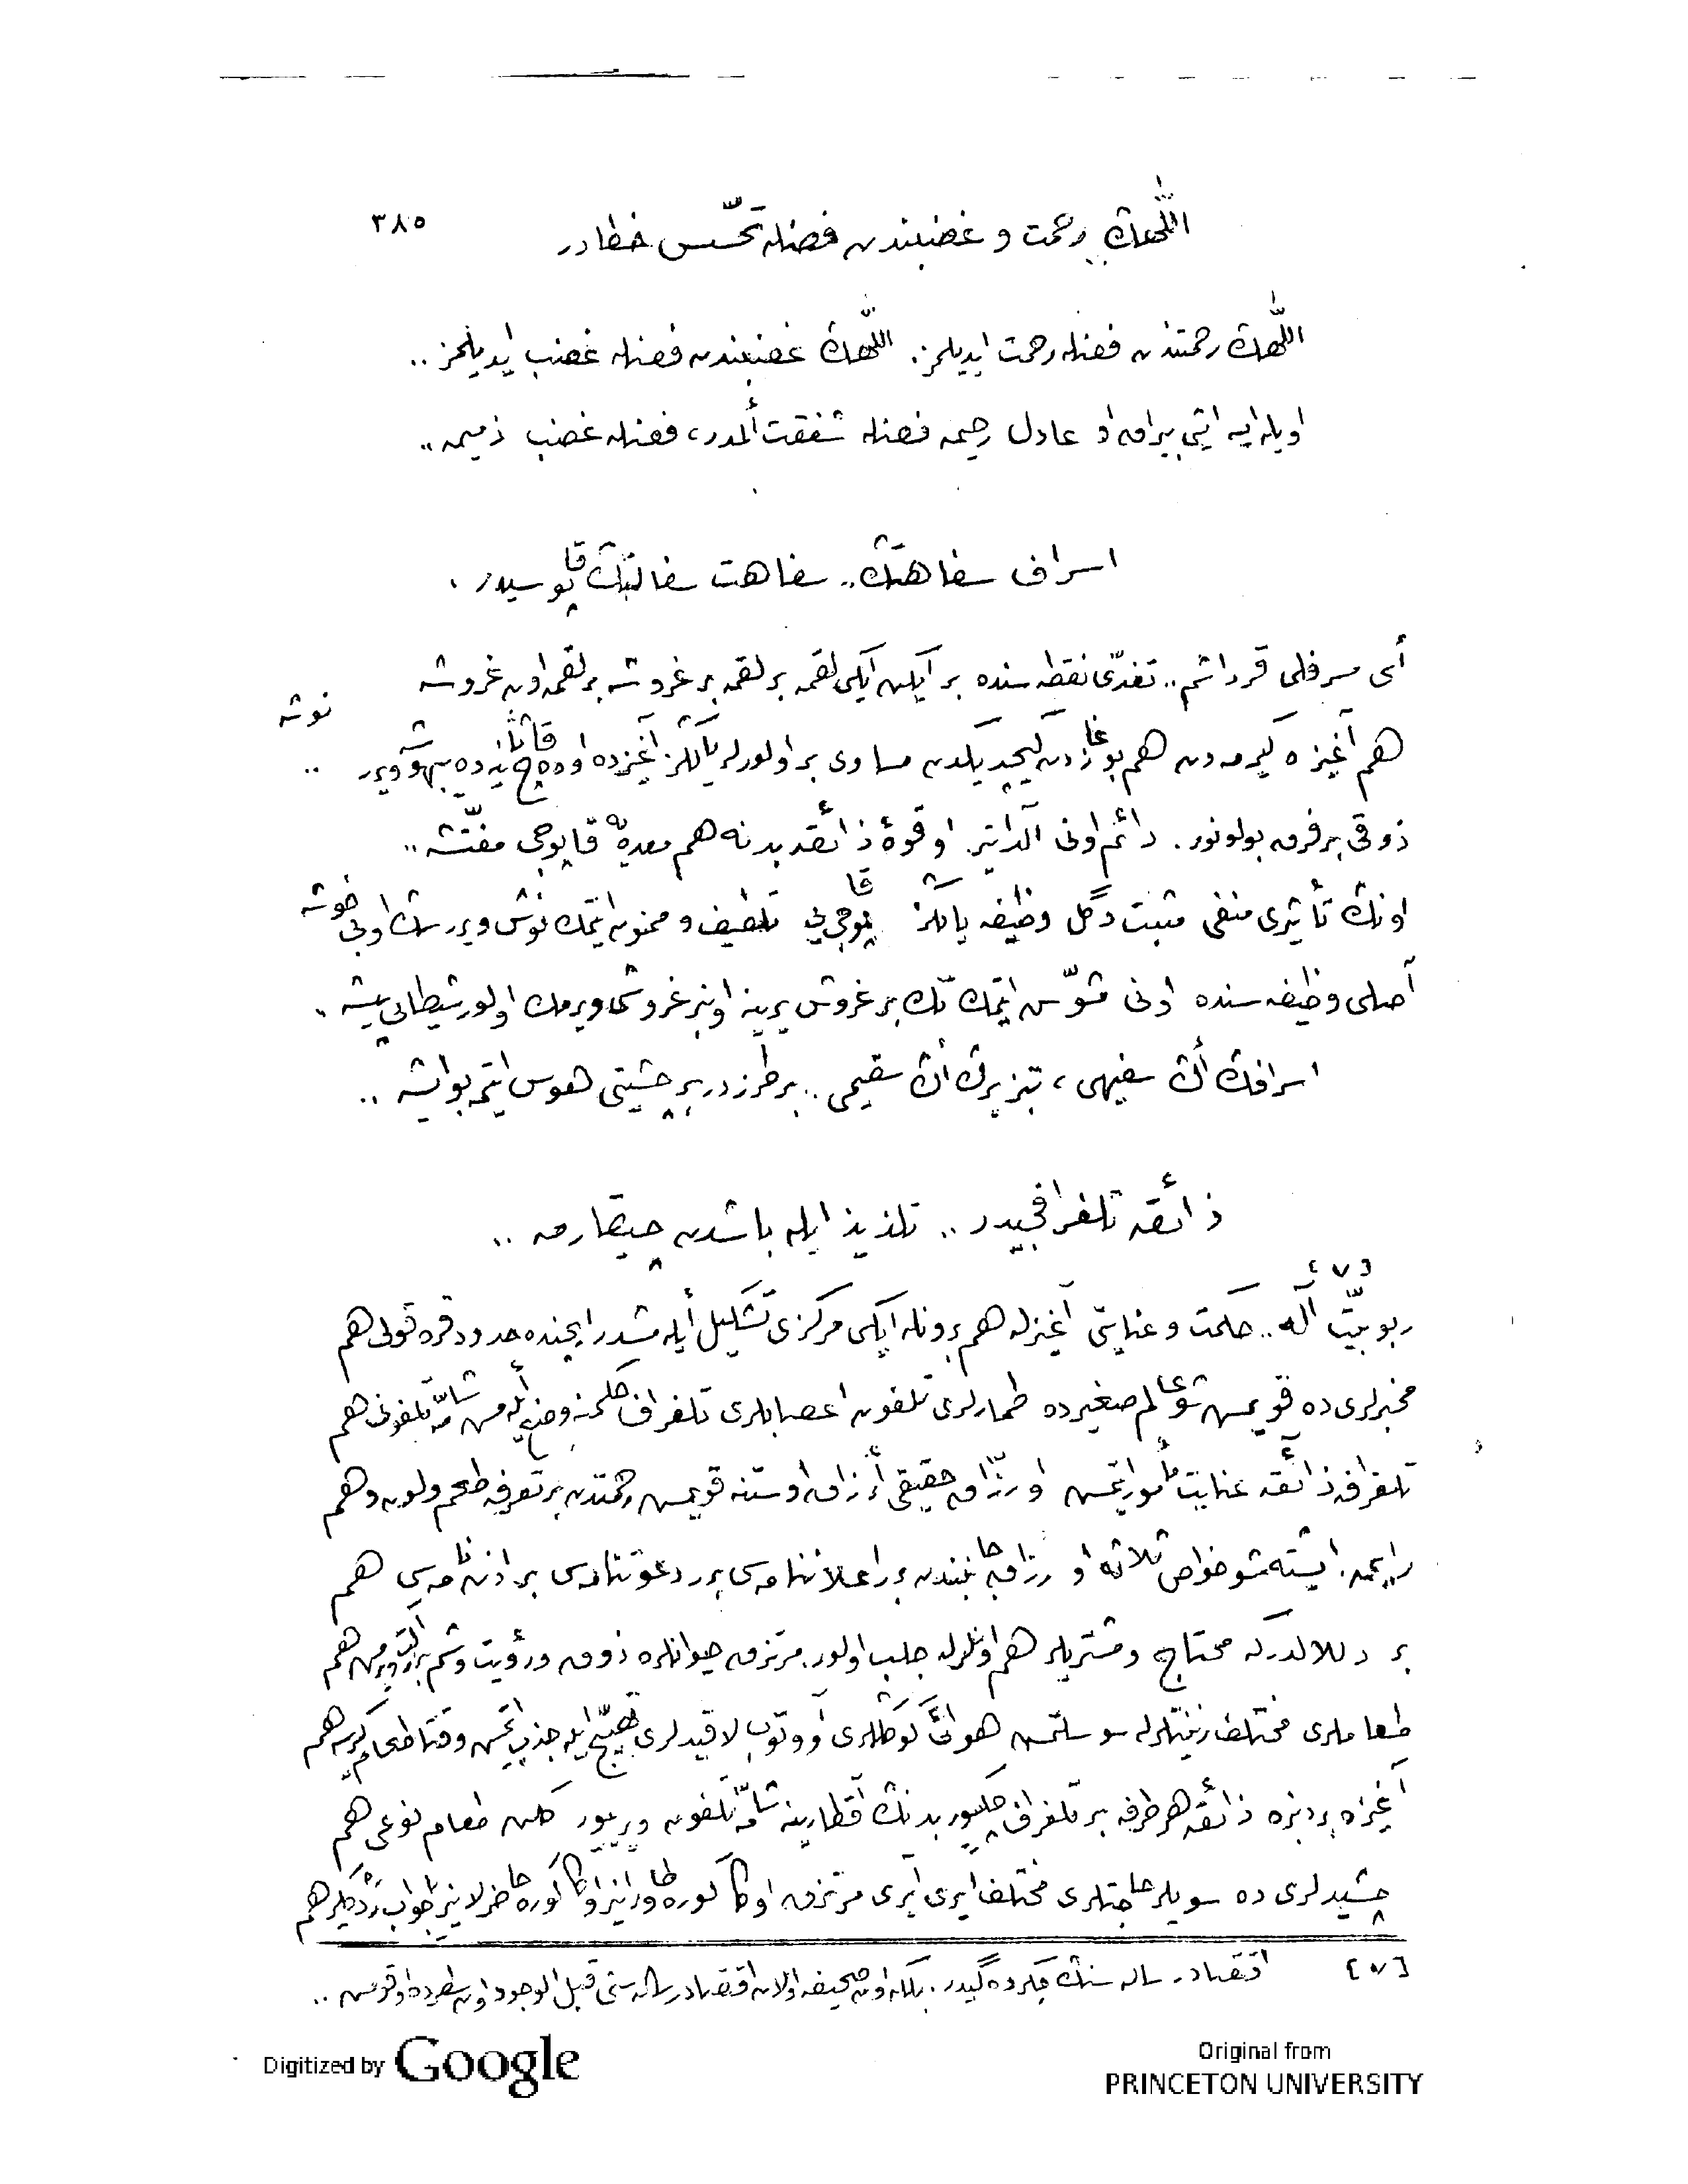 ٣٨٥
اللّٰهڭ رحمت و غضبندن فضله تحسّس خطادر
اللّٰهڭ رحمتندن فضله رحمت ايديلمز. اللّٰهڭ غضبندن فضله غضب ايديلمز..
اويله ايسه ايشى بيراق او عادل رحيمه فضله شفقت ألمدر، فضله غضب ذميمه..
اسراف سفاهتڭ.. سفاهت سفالتڭ قاپوسيدر.
أى مسرفلى قرداشم.. تغدّى نقطه سنده بر ايكن ايكى لقمه بر لقمه بر غروشه بر لقمه اون غروشه
هم آغيزه گيرمه دن هم بوغازدن گچديكدن مساوى بر اولورلر يالڭز آغيزده او ده قاچ ثانيه ده بيهوشه ويرر نوشه ..
ذوقى بر فرق بولونور. دائم اونى آلداتير او قوهٔ ذائقه بدنه هم معده يه قاپوجى مفتّشه..
اونڭ تأثيرى منفى مثبت دگل وظيفه يالڭز قاپوجى يى تلطيف و ممنون ايتمك نوش ويررسڭ اونى خوشه
أصلى وظيفه سنده اونى مشوّش ايتمك تك بر غروش يرينه اونبر غروشى ويرمك اولور شيطانى پيشه.
اسرافڭ أڭ سفيهى، تبذيرڭ أڭ سقيمى.. بر طرزدر بر چشيتى هوس ايتمه بو ايشه..
ذائقه تلغرافجيدر.. تلذيذ ايله باشدن چيقارمه..
[٧٤]
ربوبيّت آلٓه.. حكمت و عنايتى آغيزله هم برونله ايكى مركزى تشكيل أيله مشدر ايچنده حدود قره قولى هم
مخبرلرى ده قويمش شو عالم صغيرده طمارلرى تلفون اعصابلرى تلغراف حكمنه وضع أيله مش شامّه تلفونى هم
تلغرافه ذائقه عنايت مأمور ايتمش او رزّاق حقيقى أرزاق اوستنه قويمش رحمتدن بر تعرفه طعم و لون و هم
رايحه. ايشته شو خواصّ ثلاثه او رزّاق جانبندن برر اعلاننامه سى برر دعوتنامه سى بر اذن نامه سى هم
بر دلالدركه محتاج و مشتريلر هم اونلرله جلب اولور. مرتزق حيوانلره ذوق و رؤيت و شم برر آلت ويرمش هم
طعاملرى مختلف زينتلرله سوسلتمش هوائى گوڭللرى آووتوب لاقيدلرى تهييج ايله جذب ايتمش وقتا طعام گيرسه هم
آغيزه بردنبره ذائقه هر طرفه بر تلغراف چكيور بدنڭ اقطارينه شامّه تلفون ويرييور گلن طعام نوعى هم
چشيدلرى ده سويلر حاجتلرى مختلف ايرى ايرى مرتزق اوكا گوره طاورانير اوكا گوره حاضرلانير يا جواب رد گلير هم
[٧٤] اقتصاد رساله سنڭ چكرده گيدر. بلكه اون صحيفه اولان اقتصاد رساله سنى قبل الوجود اون سطرده اوقومش..
Digitized by Google
Original from
PRINCETON UNIVERSITY